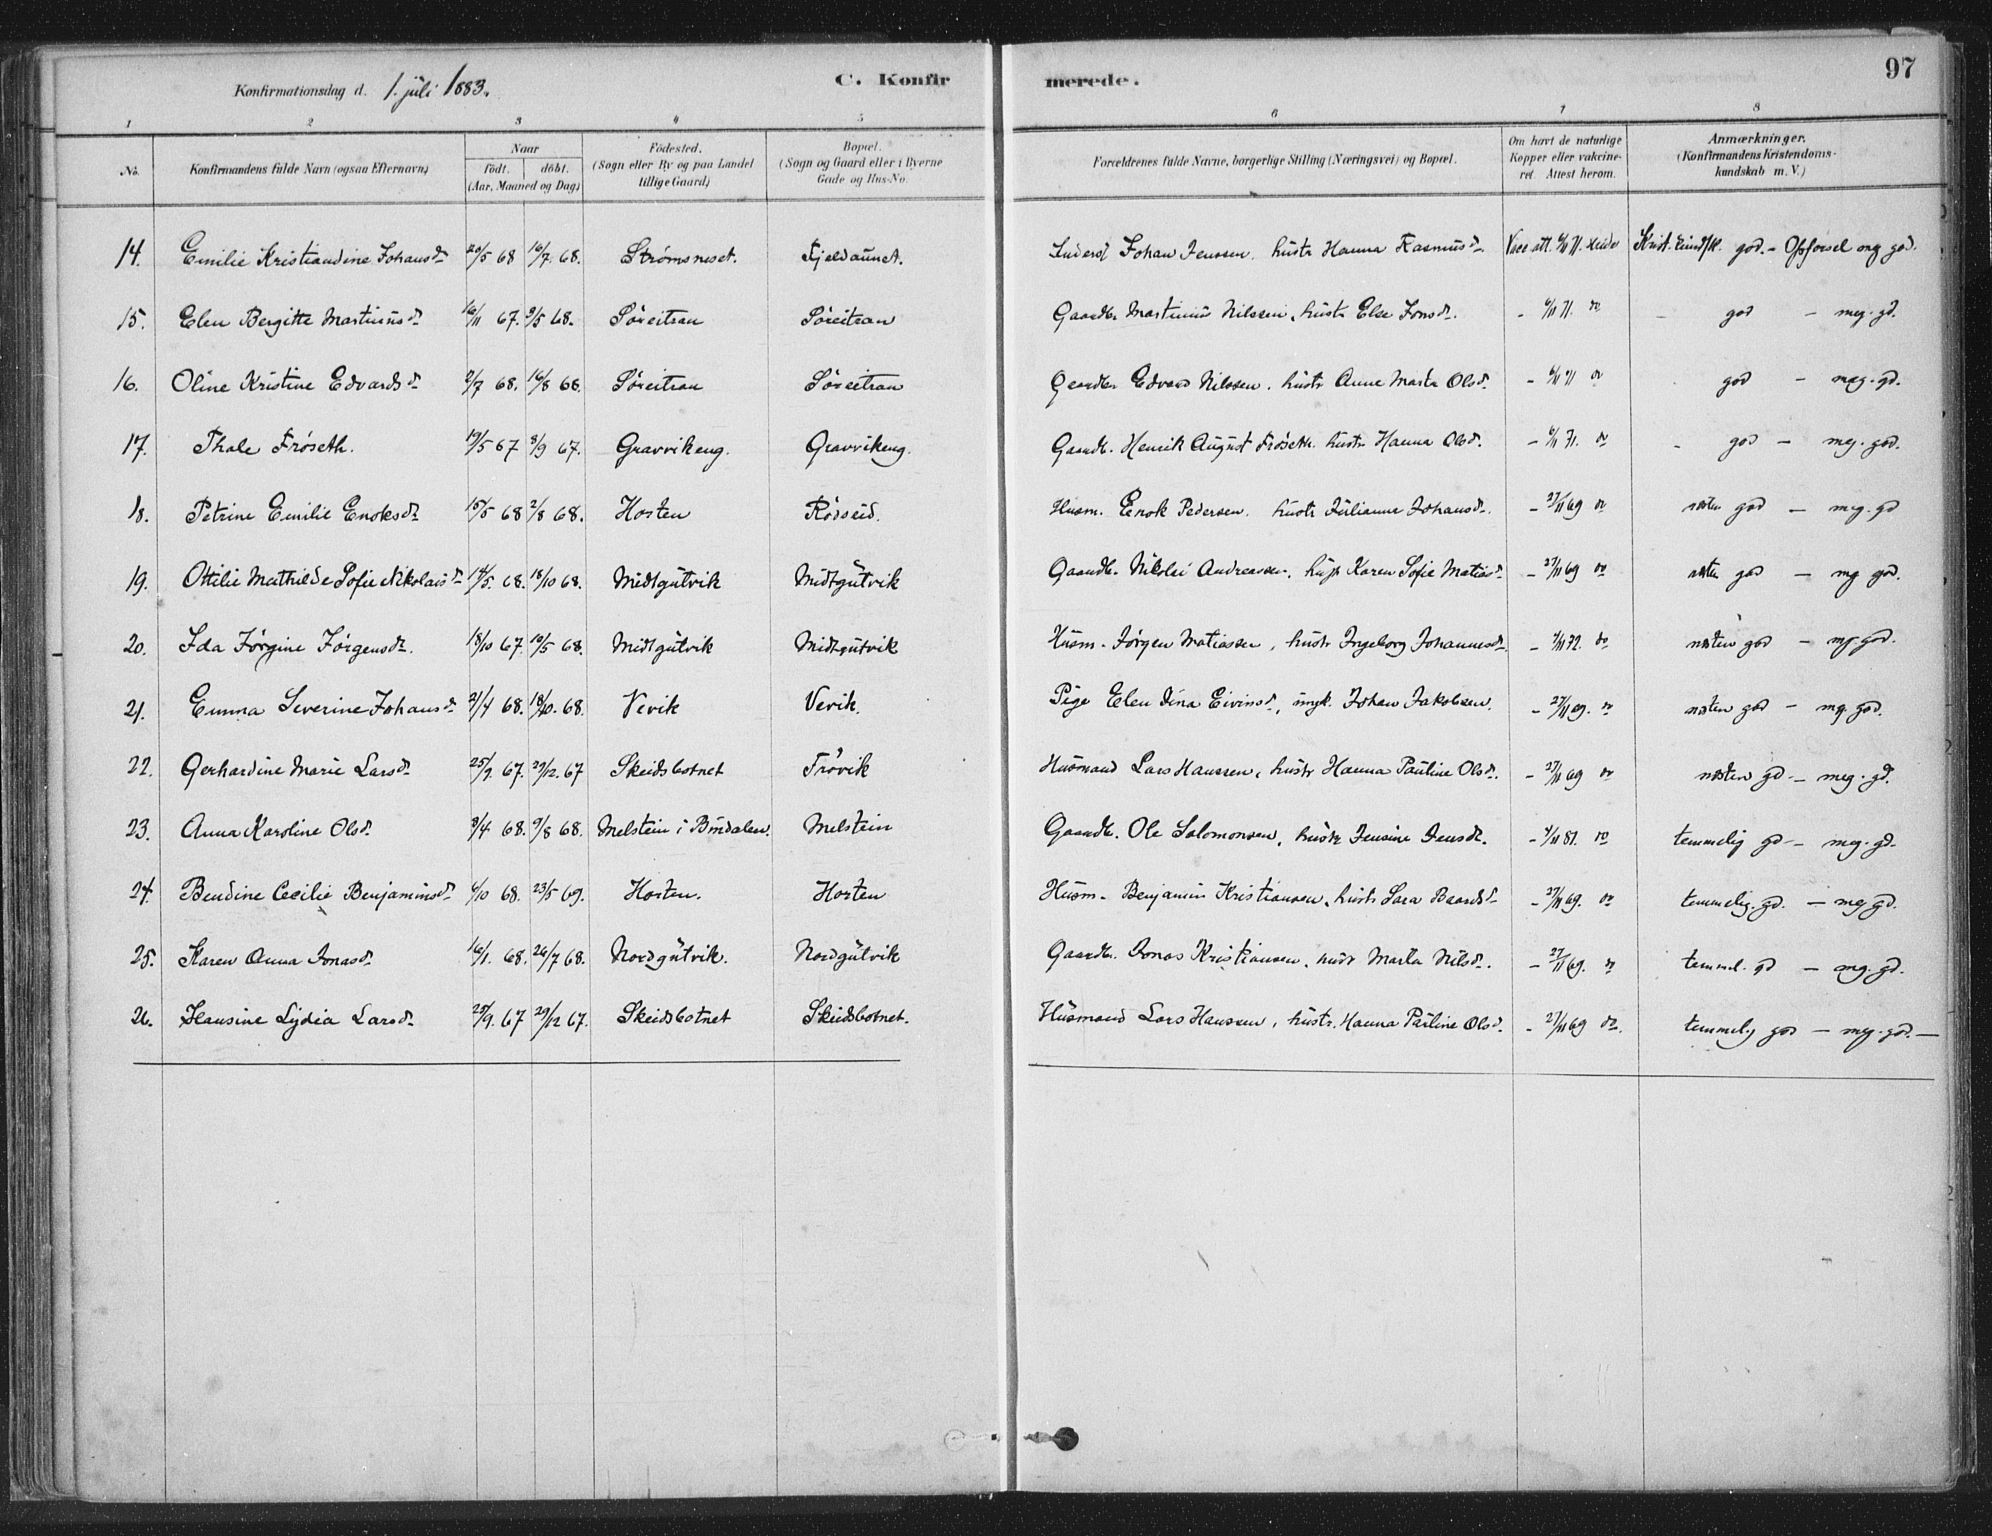 97
Konfirmationsdag d. 1. juli 1883.
C. Konfirmerede.
1 2 3 4 5 6 7 8
No. | Konfirmandens fulde Navn (ogsaa Efternavn) | Naar födt. döbt. (Aar, Maaned og Dag) | Födested. (Sogn eller By og paa Landet tillige Gaard) | Bopæl. (Sogn og Gaard eller i Byerne Gade og Hus-No. | Forældrenes fulde Navne, borgerlige Stilling (Næringsvei) og Bopæl. | Om havt de naturlige Kopper eller vakcineret. Attest herom. | Anmærkninger. (Konfirmandens Kristendomskundskab m. V.)
14. Emilie Kristiandine Johansd. 20/5 68 16/7 68. Strømsneset. Fjeldaunet. Johan Jenssen. hustr Hanna Rasmusd. Vacc att. 6/11 71. god. - Opførsel meg god.
15. Elen Bergitte Martinusd. 16/11 67. 3/5 68. Söreitran Söreitran Gaardb. Martinus Nilssen, hustr Else Jonsd. - 6/11 71. do god - meg. gd.
16. Oline Kristine Edvardsd. 2/7 68. 16/8 68. Söreitran Söreitran Gaardb. Edvard Nilssen. hustr Anne Marta Olsd. - 6/11 71 do god - meg. gd.
17. Thale Frøseth. 19/5 67 8/9 67. Gravvikeng. Gravvikeng. Gaardb. Henrik August Frøseth. hustr Hanna Olsd. - 6/11 71. do god - meg. god.
18. Petrine Emilie Enoksd. 15/5 68 2/8 68. Horten Rödseid. Husm. Enok Pedersen. hustr Julianne Johansd. - 27/11 69 do næsten god - meg. gd
19. Ottilie Mathilde Sofie Nikolaisd. 14/5. 68. 18/10 68. Midtgutvik Midtgutvik Gaardb. Nikolai Andreassen, Karen Sofie Matiasd. - 27/11 69 do næsten god - mg god.
20. Ida Jørgine Jørgensd. 18/10 67. 10/5 68. Midtgutvik Midtgutvik Husm. Jørgen Matiassen, hustr Ingeborg Johannesd. - 72. do næsten god - mg god.
21. Emma Severine Johansd. 21/4 68. 18/10. 68. Vevik Vevik. Pige Elen Eivinsd., ungk. Johan Jakobsen. - 27/11 69. do næsten god - mg. god.
22. Gerhardine Marie Larsd. 25/9. 67. 29/12. 67 Skeidsbotnet Frøvik Husmand Lars Hanssen, hustr Hanna Pauline Olsd. - 27/11 69 do næsten gd - meg. gd.
23. Anna Karoline Olsd. 8/4 68. 9/8 68. Melstein i Bindalen. Melstein Gaardb. Ole Salomonsen, hustr Jensine Jensd. - 81. do temmelig gd - meg. gd.
24. Bendine Cecilie Benjaminsd. 6/10 68. 23/5 69. Horten. Horten Husm. Benjamin Kristiansen, hustr Sara Baardsd. - 27/11 69. do temmelig. gd. - meg gd.
25. Karen Anna Jonasd. 16/1. 68. 26/7 68. Nordgutvik. Nordgutvik Gaardb. Jonas Kristiansen, hustr Marta Nilsd. - 27/11 69. do temmel. gd - mg. gd.
26. Hansine Lydia Larsd. 25/9. 67 29/12 67. Skeidsbotnet Skeidsbotnet. Husmand Lars Hanssen, hustr. Hanna Pauline Olsd. - 27/11 69 do. temmelig god - meg. god. -